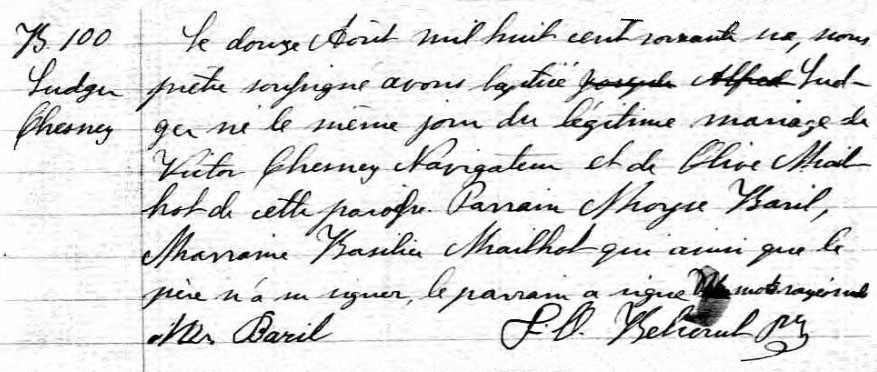 B. 100
Ludger
Chesney
Le douze Août mil huit cent soixante six, nous
prêtre soussigné avons baptisé Joseph Alfred Lud-
ger né le même jour du légitime mariage de
Victor Chesney Navigateur et de Olive Mail-
hot de cette paroisse. Parrain Moyse Baril,
Marraine Basilice Mailhot qui ainsi que le
père n'a su signer, le parrain a signé mots rayés nuls
Mes Baril
Ptr